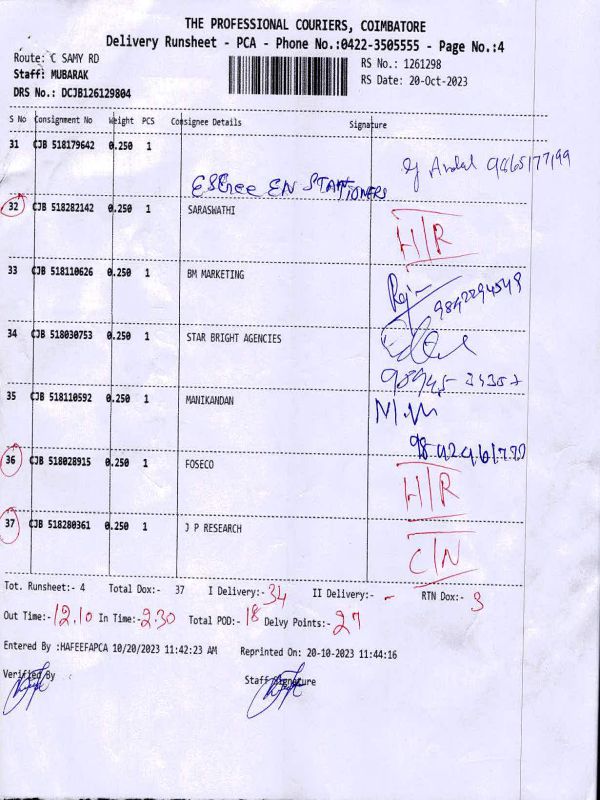 THE PROFESSIONAL COURIERS, COIMBATORE
Delivery Runsheet - PCA - Phone No.:0422-3505555 - Page No.:4
Route: C SAMY RD
RS No.: 1261298
Staff: MUBARAK
RS Date: 20-Oct-2023
DRS No.: DCJB126129804
S No Consignment No Weight PCS Consignee Details Signature
31 CJB 518179642 0.250 1
ESSreE EN STATIONERS
32 CJB 518282142 0.250 1 SARASWATHI H/R
33 CJB 518110626 0.250 1 BM MARKETING
34 CJB 518030753 0.250 1 STAR BRIGHT AGENCIES
35 CJB 518110592 0.250 1 MANIKANDAN
36 CJB 518028915 0.250 1 FOSECO H/R
37 CJB 518280361 0.250 1 J P RESEARCH C/N
Tot. Runsheet:- 4 Total Dox:- 37 I Delivery:- 34 II Delivery:- - RTN Dox:- 3
Out Time:- 12.10 In Time:- 2.30 Total POD:- 18 Delvy Points:- 27
Entered By :HAFEEFAPCA 10/20/2023 11:42:23 AM Reprinted On: 20-10-2023 11:44:16
Verified By Staff Signature